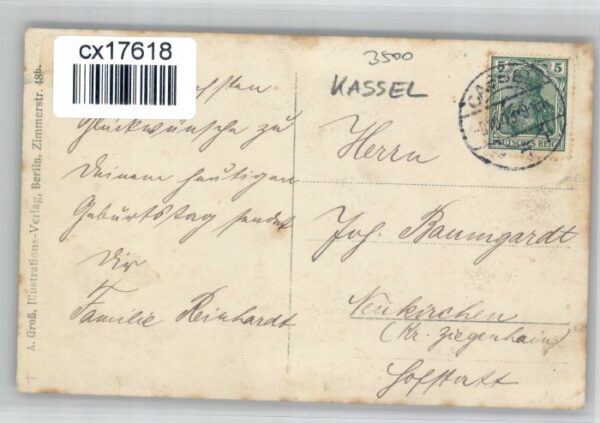 cx17618
3500
KASSEL
CASSEL
5 5
DEUTSCHES REICH
Glückwünsche zu
Deinem heutigen
Geburtstag sendet
Dir
Familie Reinhardt
Herrn
Joh. Baumgardt
Neukirchen
(Kr. Ziegenhain)
Hofstatt
A. Groß, Illustrations-Verlag, Berlin, Zimmerstr. 48b.